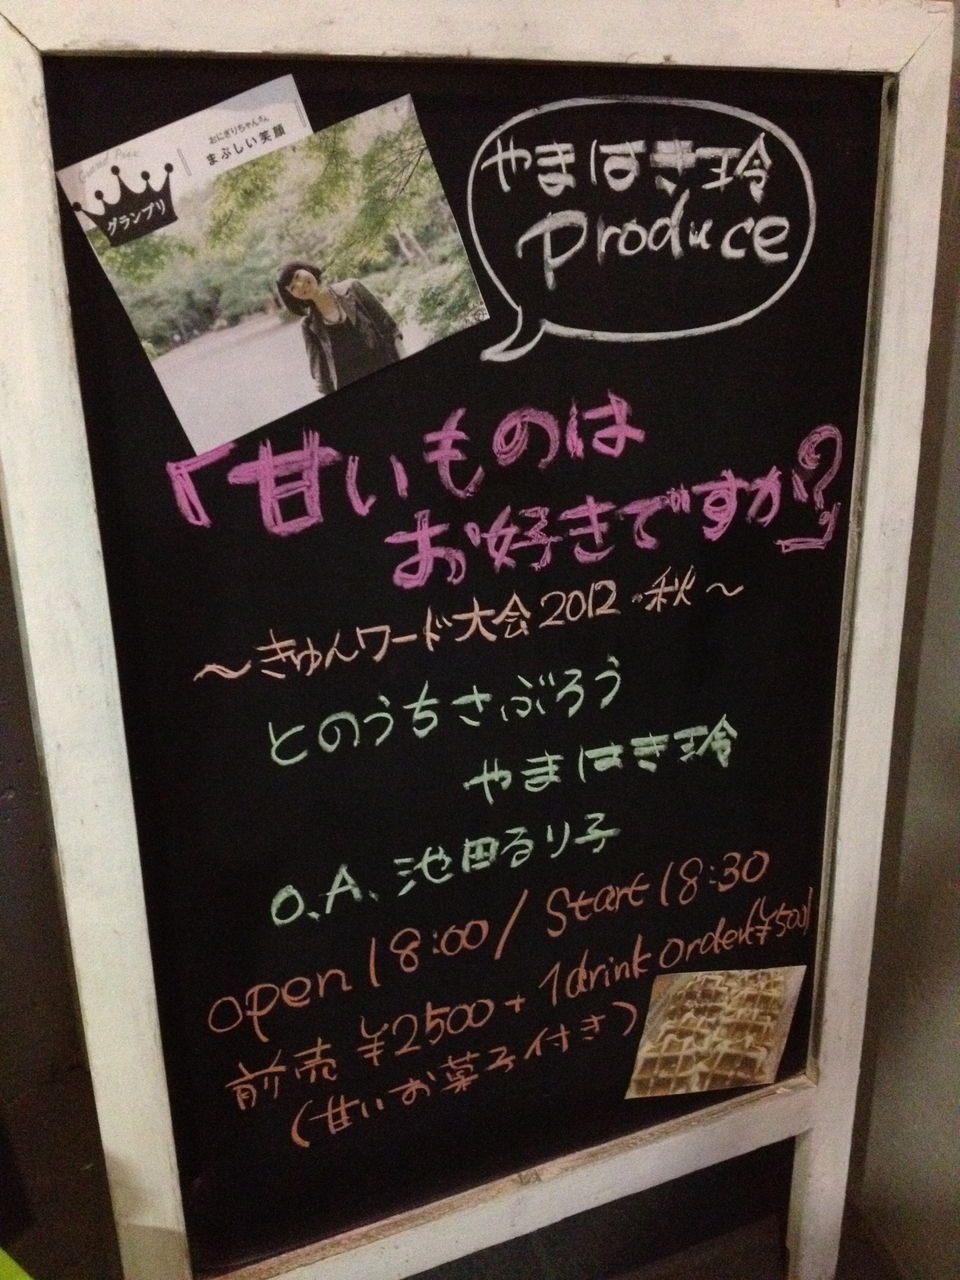 Grand Prix
グランプリ
おにぎりちゃんさん
まぶしい笑顔
やまはき玲
Produce
「甘いものは
お好きですか?」
〜きゅんワード大会2012・秋〜
とのうちさぶろう
やまはき玲
O.A. 池田るり子
open 18:00/Start 18:30
前売 ¥2500+1drink order(¥500)
(甘いお菓子付き)